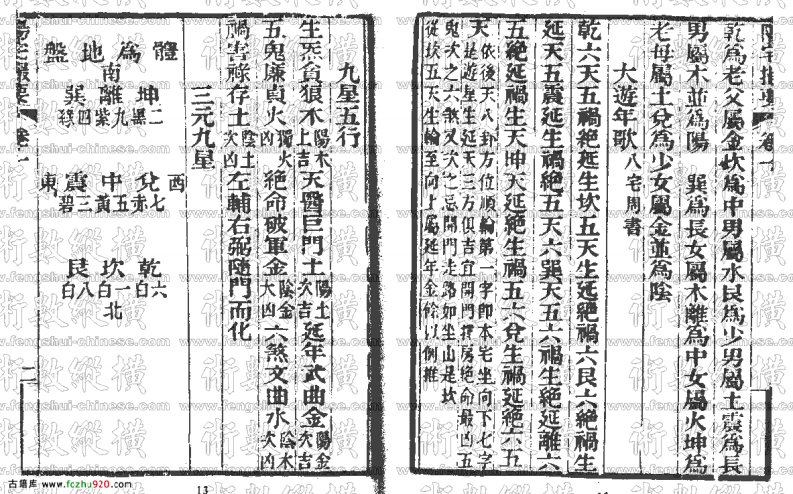 陽宅撮要 卷一
乾為老父屬金坎為中男屬水艮為少男屬土震為長
男屬木並為陽 巽為長女屬木離為中女屬火坤為
老母屬土兌為少女屬金並為陰
大遊年歌 八宅周書
乾六天五禍絕延生坎五天生延絕禍六艮六絕禍生
延天五震延生禍絕五天六巽天五六禍生絕延離六
五絕延禍生天坤天延絕生禍五六兌生禍延絕六五
天 依後天八卦方位順輪第一字即本宅坐向下七字
是遊星生延天三方俱吉宜開門擇房絕命最凶五
鬼次之六煞又次之忌開門走路如坐山是坎
從坎五天生輪至向上屬延年金餘以例推
九星五行
生炁貪狼木 陽木上吉 天醫巨門土 陽土次吉 延年武曲金 陽金次吉
五鬼廉貞火 獨火凶 絕命破軍金 陰金大凶 六煞文曲水 陰木次凶
禍害祿存土 陰土次凶 左輔右弼隨門而化
三元九星
體為地盤
南
坤二黑 離九紫 巽四綠
西 兌七赤 中五黃 震三碧 東
乾六白 坎一白 艮八白
北
陽宅撮要 卷一 二
13
古籍库·www.fczhu920.com
術數縱橫
www.fengshui-chinese.com